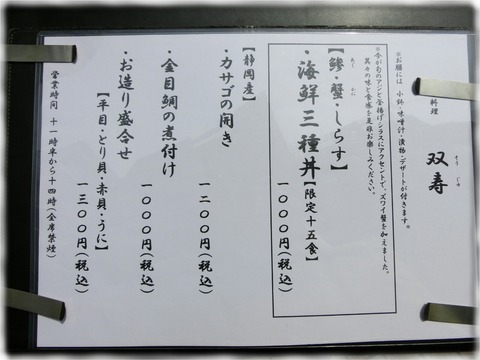 料理 双寿
そうじゅ
※お膳には、小鉢・味噌汁・漬物・デザートが付きます。
※今が旬のアジと釜揚げシラスにアクセントで、ズワイ蟹を加えました。
其々の味と食感を是非お楽しみください。
【鯵・蟹・しらす】
あじ かに
・海鮮三種丼【限定十五食】
一〇〇〇円(税込)
【静岡産】
・カサゴの開き
一二〇〇円(税込)
・金目鯛の煮付け
一〇〇〇円(税込)
・お造り盛合せ
【平目・とり貝・赤貝・うに】
一三〇〇円(税込)
営業時間 十一時半から十四時(全席禁煙)